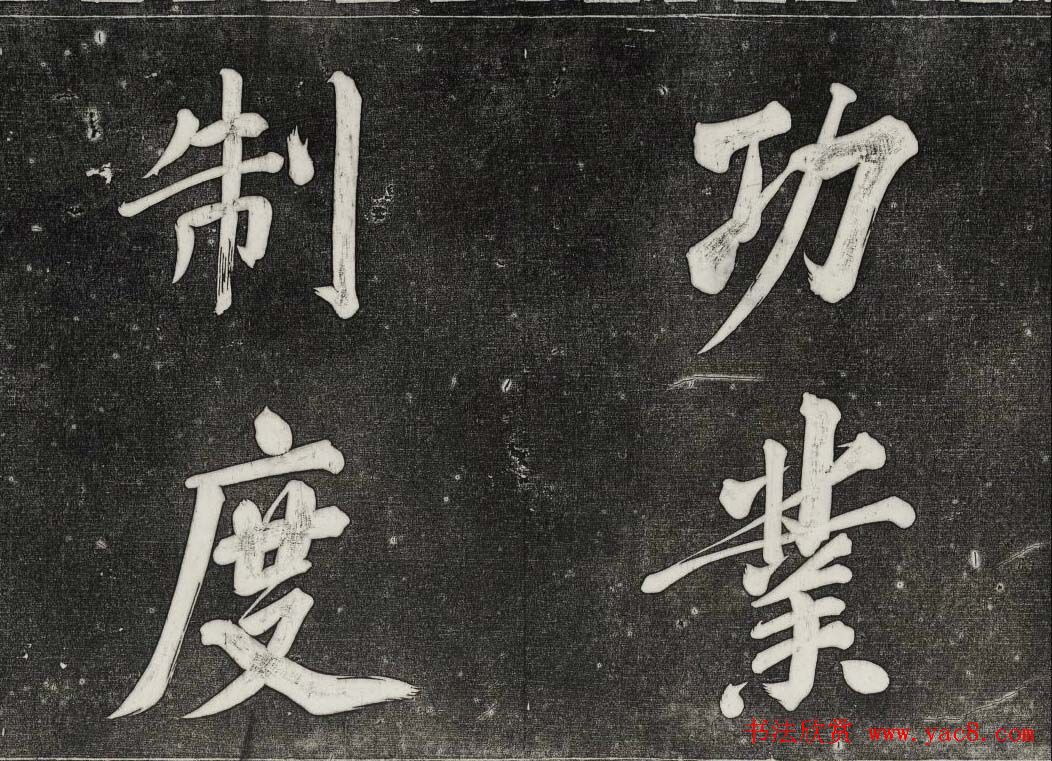 功業
制度
书法欣赏 www.yac8.com